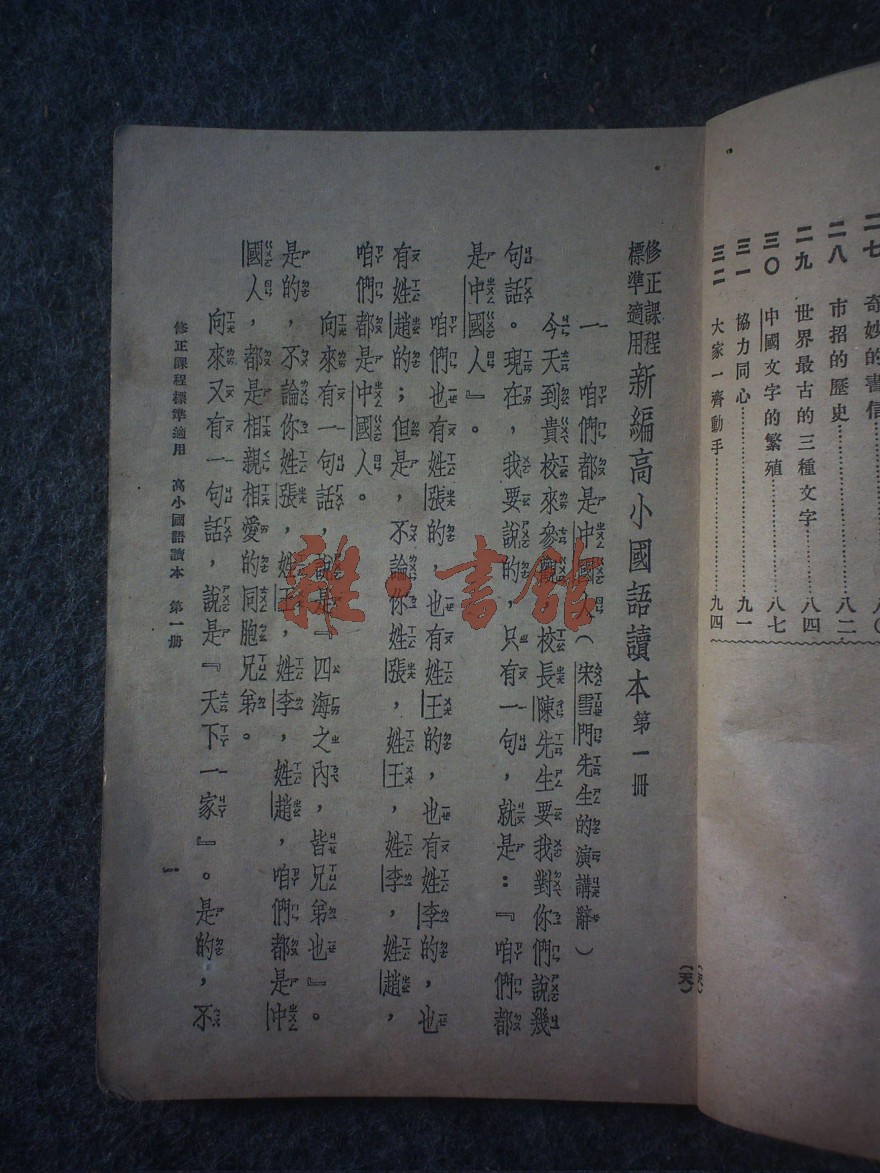 二七 奇妙的書信……八〇
二八 市招的歷史……八二
二九 世界最古的三種文字……八四
三〇 中國文字的繁殖……八七
三一 協力同心……九一
三二 大家一齊動手……九四
修正課程標準適用 新編高小國語讀本 第一冊
一 咱們都是中國人(宋雪門先生的演講辭)
今天到貴校來參觀,校長陳先生要我對你們說幾
句話。現在,我要說的,只有一句,就是:『咱們都
是中國人』。
咱們也有姓張的,也有姓王的,也有姓李的,也
有姓趙的;但是,不論你姓張,姓王,姓李,姓趙,
咱們都是中國人。
向來有一句話,說是『四海之內,皆兄弟也』。
是的,不論你姓張,姓王,姓李,姓趙,咱們都是中
國人,都是相親相愛的同胞兄弟。
向來又有一句話,說是『天下一家』。是的,不
修正課程標準適用 高小國語讀本 第一册
一
(天)
雜·書館